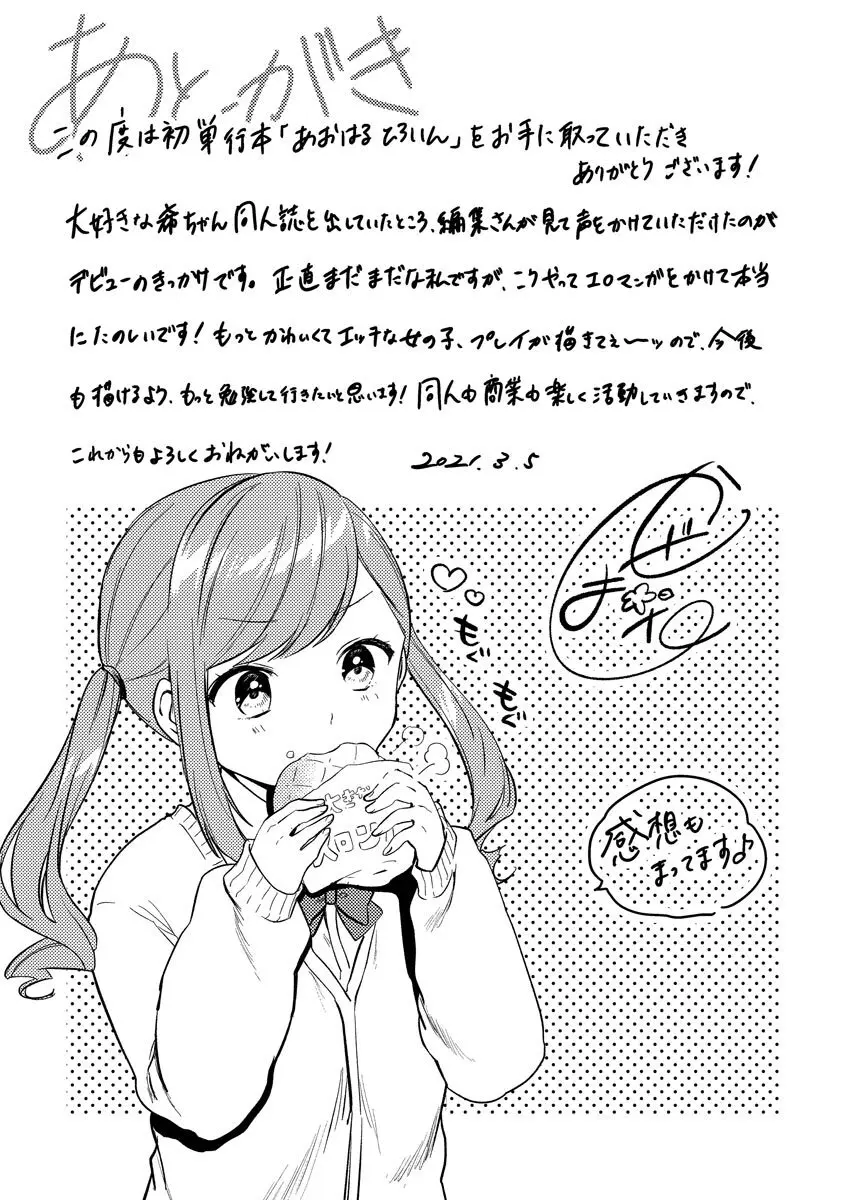 あとがき
この度は初単行本「あおはるひろいん」をお手に取っていただき
ありがとうございます!
大好きな希ちゃん同人誌を出していたところ、編集さんが見て声をかけていただけたのが
デビューのきっかけです。正直まだまだな私ですが、こうやってエロマンガをかけて本当
にたのしいです!もっとかわいくてエッチな女の子、プレイが描きてぇ〜ッので、今後
も描けるよう、もっと勉強して行きたいと思います!同人も商業も楽しく活動していきますので、
これからもよろしくおねがいします!
2021.3.5
もぐ
もぐ
メロンパン
感想も
まってます♪